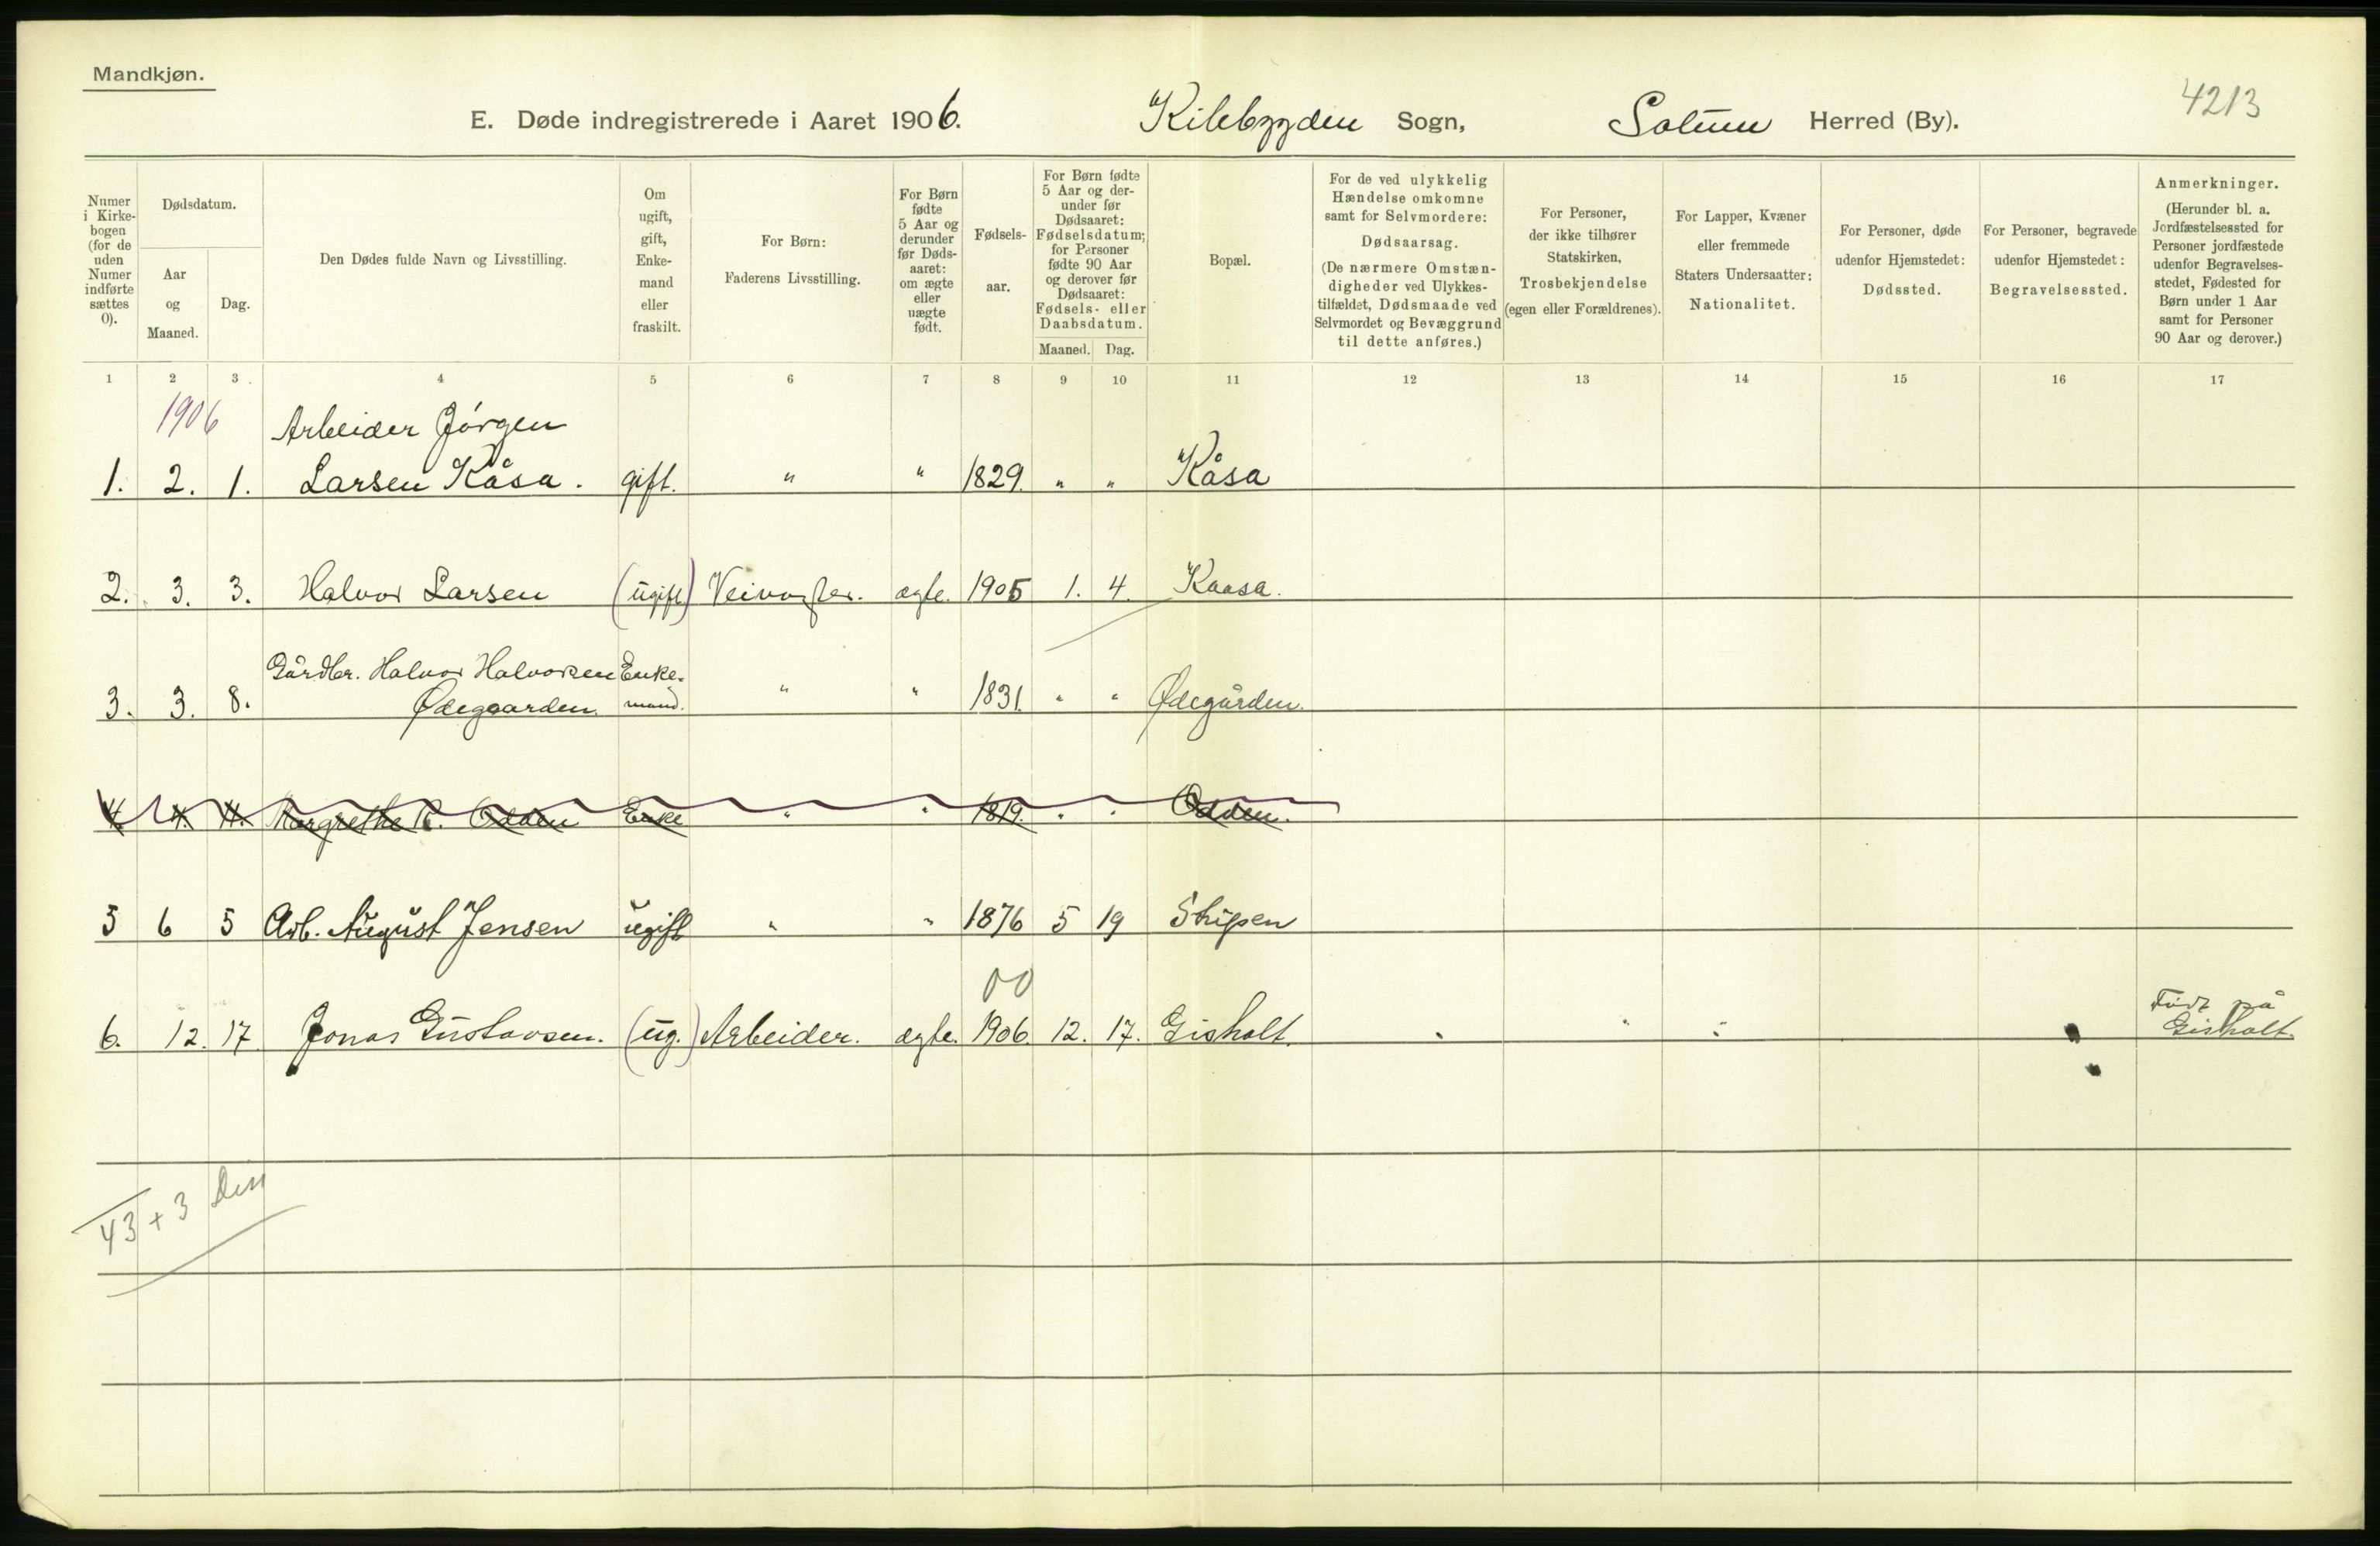 Mandkjøn.
4213
E. Døde indregistrerede i Aaret 1906. Kilebygden Sogn, Solum Herred (By).
Numer i Kirkebogen (for de uden Numer indførte sættes 0).
Dødsdatum.
Aar og Maaned.
Dag.
Den Dødes fulde Navn og Livsstilling.
Om ugift, gift, Enkemand eller fraskilt.
For Børn: Faderens Livsstilling.
For Børn fødte 5 Aar og derunder før Dødsaaret: om ægte eller uægte født.
Fødselsaar.
For Børn fødte 5 Aar og derunder før Dødsaaret: Fødselsdatum; for Personer fødte 90 Aar og derover før Dødsaaret: Fødsels- eller Daabsdatum.
Maaned. Dag.
Bopæl.
For de ved ulykkelig Hændelse omkomne samt for Selvmordere: Dødsaarsag. (De nærmere Omstændigheder ved Ulykkestilfældet, Dødsmaade ved Selvmordet og Bevæggrund til dette anføres.)
For Personer, der ikke tilhører Statskirken, Trosbekjendelse (egen eller Forældrenes).
For Lapper, Kvæner eller fremmede Staters Undersaatter: Nationalitet.
For Personer, døde udenfor Hjemstedet: Dødssted.
For Personer, begravede udenfor Hjemstedet: Begravelsessted.
Anmerkninger. (Herunder bl. a. Jordfæstelsessted for Personer jordfæstede udenfor Begravelsesstedet, Fødested for Børn under 1 Aar samt for Personer 90 Aar og derover.)
1 2 3 4 5 6 7 8 9 10 11 12 13 14 15 16 17
1906 Arbeider Jörgen
1. 2. 1. Larsen Kåsa. gift. " " 1829. " " Kåsa
2. 3. 3. Halvor Larsen (ugift) Veivogter. ægte. 1905 1. 4. Kaasa.
Gårdbr. Halvor Halvorsen Enke-
3. 3. 8. Ødegaarden. mand. " " 1831. " " Ødegården.
4. 4. 11. Margrethe K. Odden Enke " " 1819. " " Odden.
5 6 5 Arb. August Jensen ugift " " 1876 5 19 Stigen
00
6. 12. 17 Jonas Gustavsen. (ug.) Arbeider. ægte. 1906. 12. 17. Gisholt. Født på
Gisholt.
43 + 3